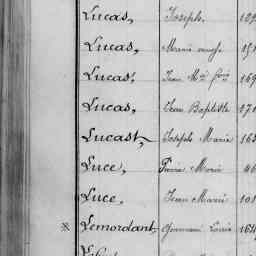 Lucas, Joseph
Lucas, Marie
Lucas, Jean Mie
Lucas, Jean Baptiste 171
Lucast, Joseph Marie 163
Luce, Pierre Marie 46
Luce, Jean Marie 101
Lemordant, Louis 164